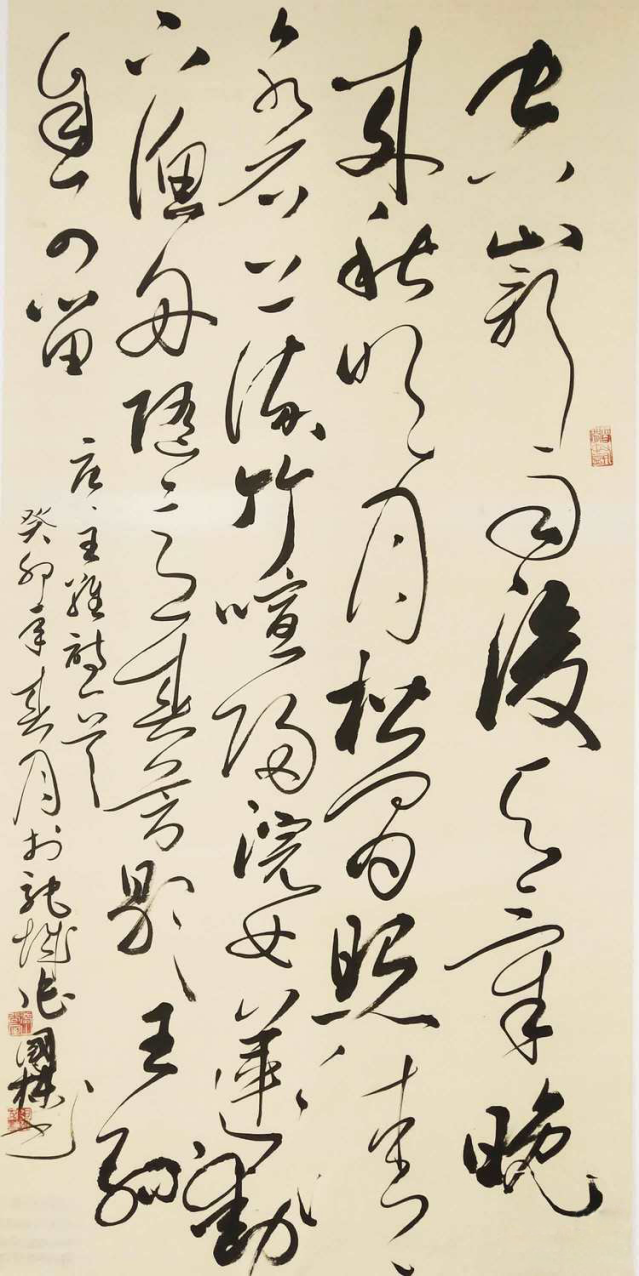 空山新雨後天氣晚
來秋明月松間照清
泉石上流竹喧歸浣女蓮動
下漁舟隨意春芳歇王孫
自可留
唐王維詩一首
癸卯年春月於龍城張國書